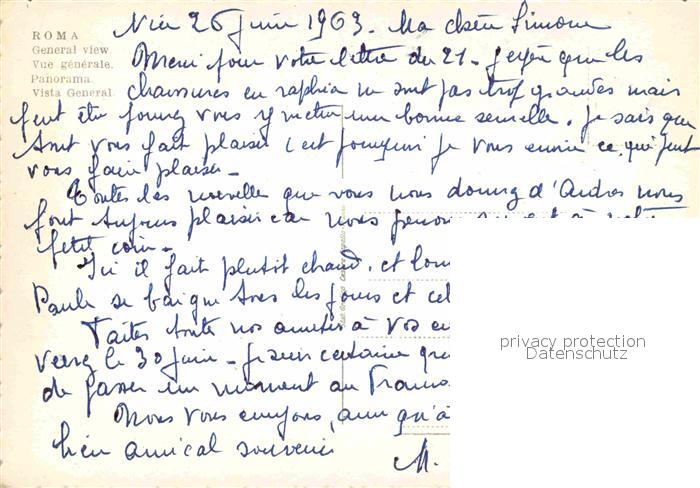 Nice 26 juin 1963. Ma chère Simone
ROMA
General view.
Vue générale.
Panorama.
Vista General.
Merci pour votre lettre du 21. que les
chaussures en raphia ne sont pas trop grandes mais
peut être pouvez vous y mettre une bonne semelle. je sais que
tout vous fait plaisir c'est pourquoi je vous envoie ce qui peut
vous faire plaisir.
Toutes les nouvelles que vous nous donnez d'Andros nous
font toujours plaisir car nous
petit coin.
Ici il fait plutôt chaud. et
Paule se baigne tous les jours et
Faites toutes nos amitiés à vos
verrez le 30 juin. je suis certaine
de passer un moment au
Nous vous envoyons, ainsi qu'à
bien amical souvenir
M.
privacy protection
Datenschutz